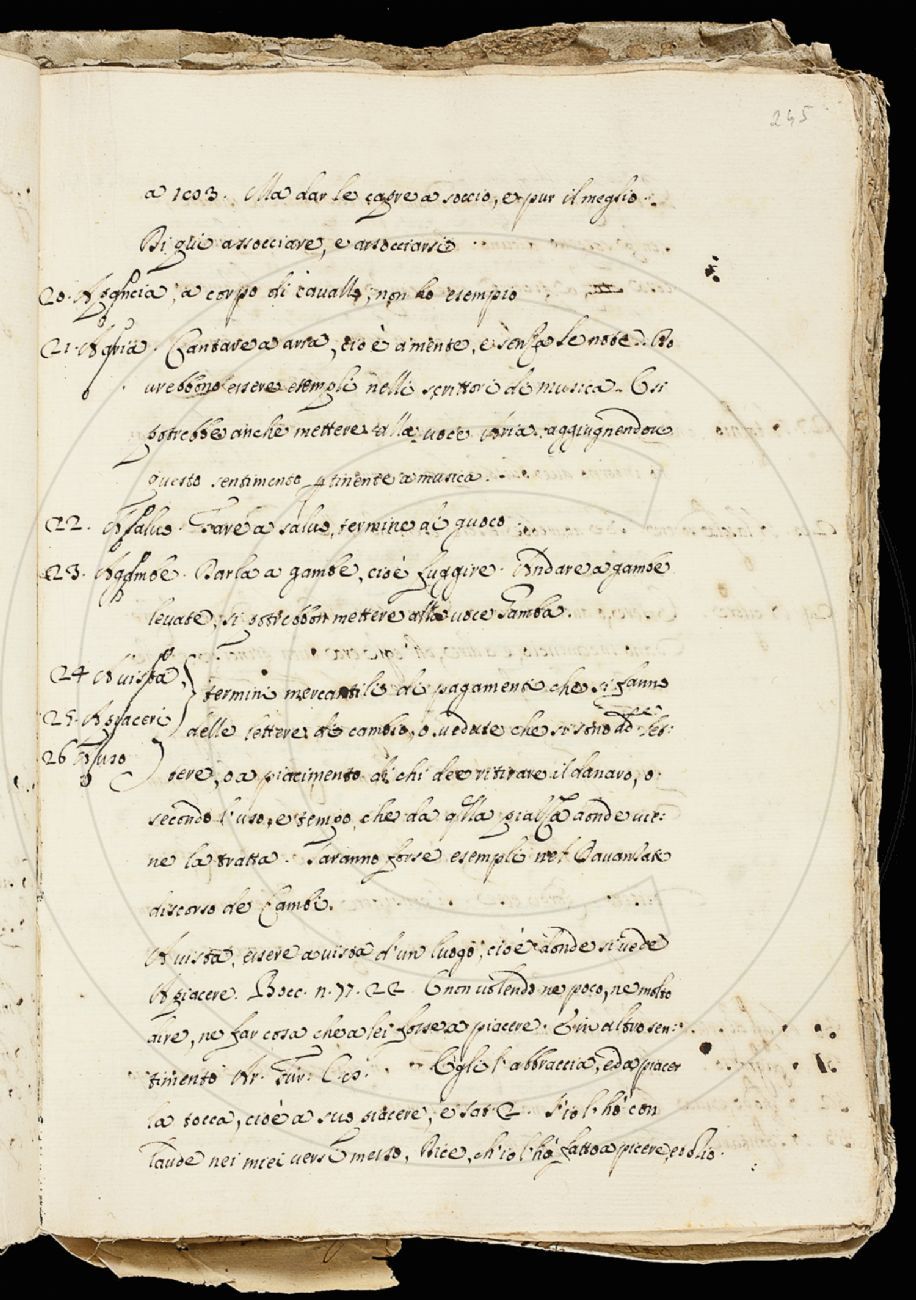 245
a 103. Ma dar le capre a soccio, e pur il meglio.
Di qui assocciare, e assocciarsi
20. A ; a corpo di cavallo, non ho esempio
21. Aria. Cantare a aria, cioè a mente, e senza le note. Do
urebbono essere esempli nelli scrittori di musica. E si
potrebbe anche mettere alla uoce Aria. aggiugnendou
questo sentimento ptinente a musica.
22. A saluo. Fare a saluo, termine di guoco
23. A gambe. Darla a gambe, cioè fuggire. Andare a gambe
leuate, si potrebbon mettere alla uoce Gamba.
24 A uista,
termini mercantili di pagamenti che si fanno
25. A piaceri
delle lettere di cambio, o uedute che si sono le let:
26 A uso
tere, o a piacimento di chi dee ritirare il danaro, o
secondo l'uso, e tempo, che da qlla piazza donde uie:
ne la tratta. Saranno forse esempli nel Dauanzati
discorso de Cambi.
A uista, essere a uista d'un luogo, cioè donde si uede
A piacere. Bocc. n. 77. 22. E non uolendo ne poco, ne molto
dire, ne far cosa che a lei fosse a piacere. E in altro sen:
timento Ar. Fur: C. Egli l'abbraccia, ed a piacer
la tocca, cioè a suo piacere, e sat. 2. S'io l'hò con
laude nei miei uersi messo, Dice, ch'io l'hò fatto a picere, e